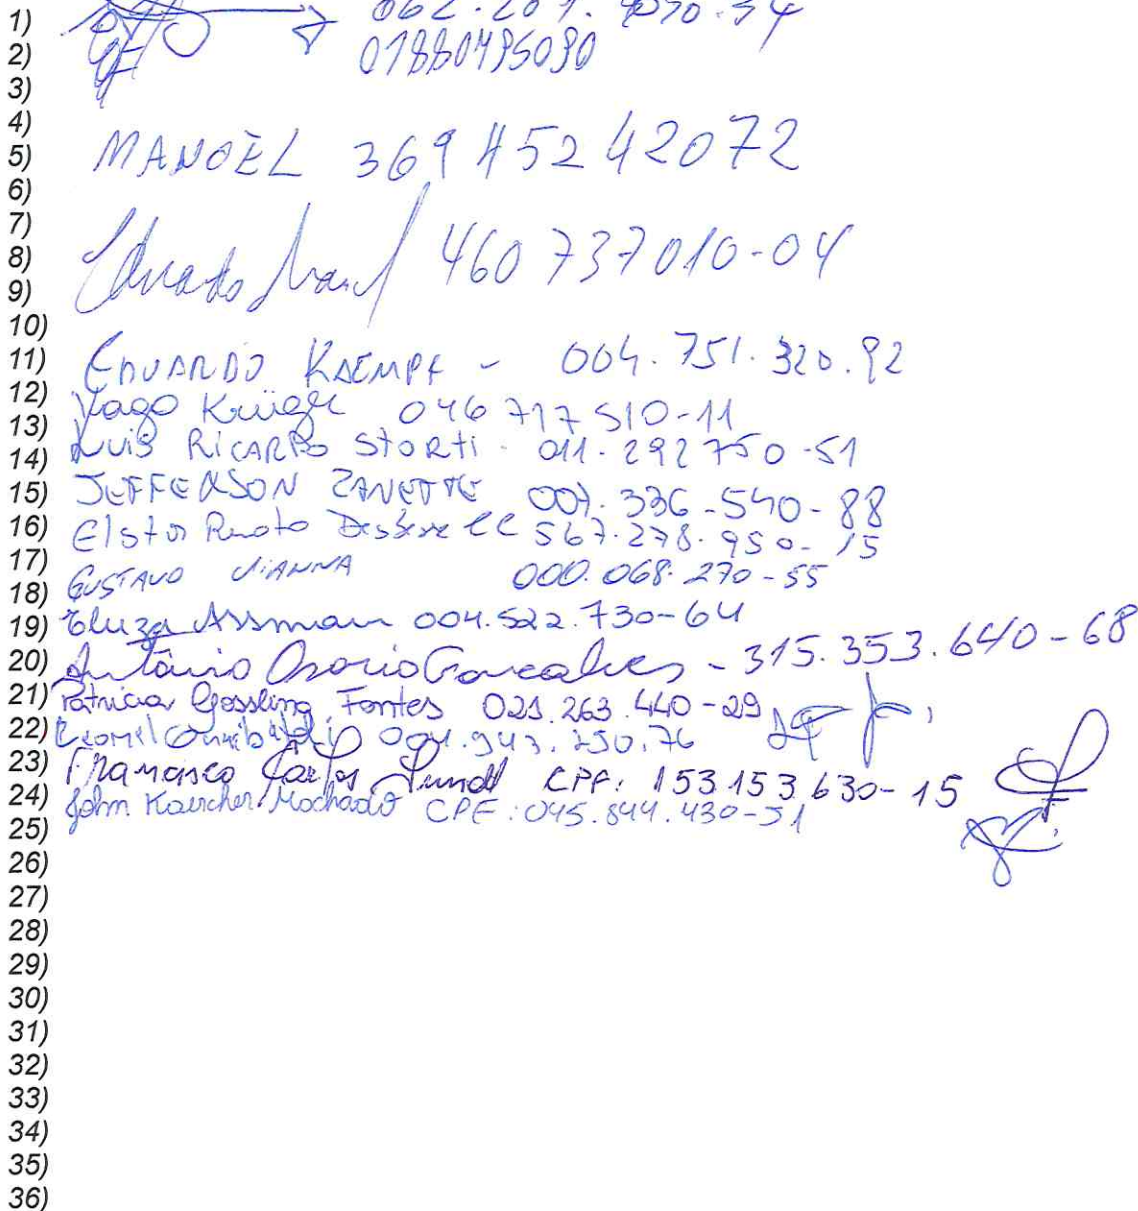 1)
2) 01880495090
3)
4)
5) MANOEL 36945242072
6)
7)
8) Eduardo 460 737010-04
9)
10)
11) EDUARDO KAEMPF - 004.751.320.92
12)
13) Yago Krüger 046 717 510-11
14) LUIS RICARDO STORTI - 011.292750-51
15) JEFFERSON ZANETTE 007.336-540-88
16) Renato 567.278.950-15
17)
18) GUSTAVO VIANNA 000.068.270-55
19) Eluza Assmann 004.522.730-64
20) Antônio Osorio Goncalves - 315.353.640-68
21) Patricia Gossling Fontes 021.263.440-29
22)
23) Francisco Carlos CPF: 153.153.630-15
24) John Kaercher Machado CPF: 045.844.430-51
25)
26)
27)
28)
29)
30)
31)
32)
33)
34)
35)
36)